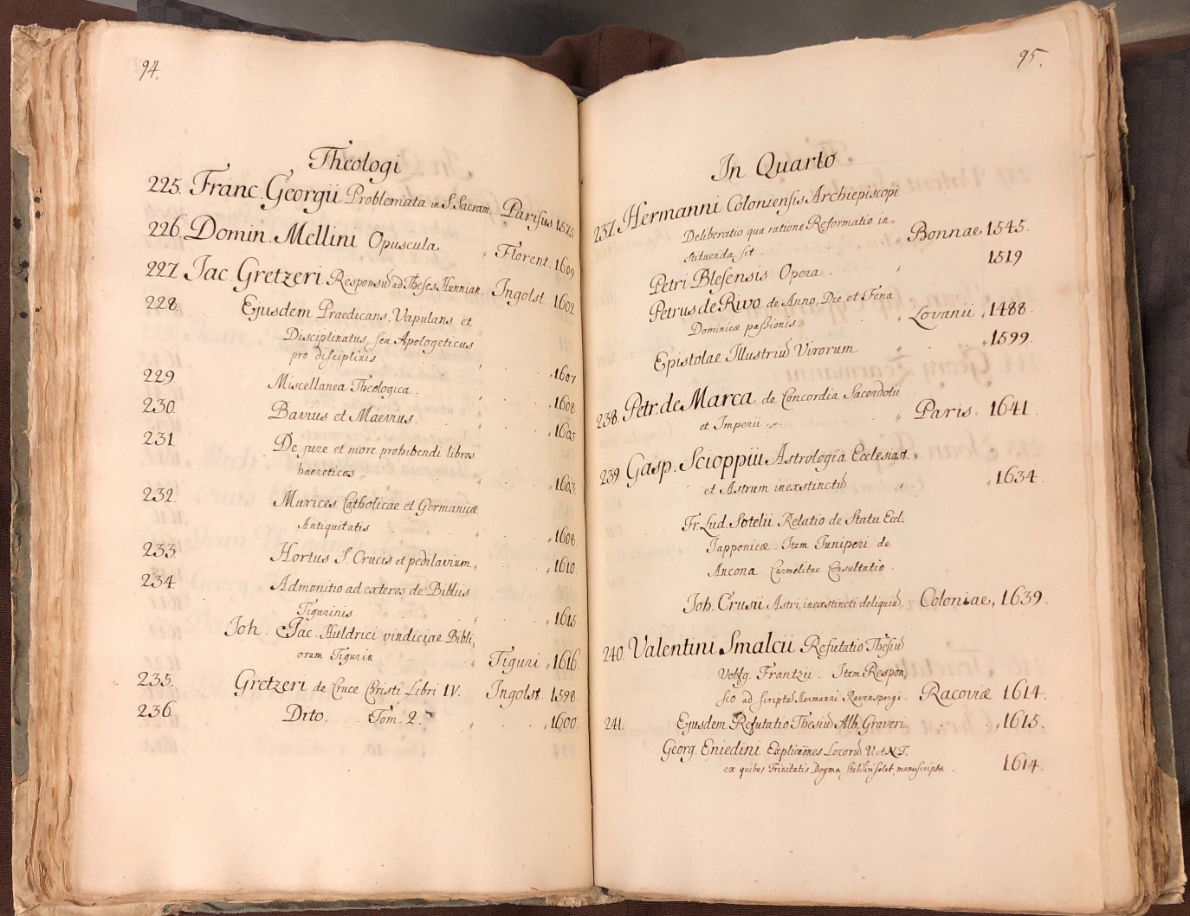 94.
Theologi
225. Franc. Georgii Problemata in S. Sacram. Parisiis 1575
226. Domin. Mellini Opuscula „ Florent. 1609
227. Jac. Gretzeri Responsū ad Theses Hunnian. Ingolst. 1602
228. Ejusdem Praedicans, Vapulans et
Disciplinatus, seu Apologeticus
pro disciplinis „ 1607
229. Miscellanea Theologica. „ 1608
230. Bavius et Maevius. „ 1605
231 De jure et more prohibendi libros
haereticos „ 1603
232. Murices Catholicae et Germanicæ
Antiquitatis „ 1608
233 Hortus S. Crucis et pedilavium „ 1610
234. Admonitio ad exteros de Bibliis
Tigurinis „ 1615
Joh. Jac. Huldrici vindiciae Bibli,
orum Tigurin „ Tiguri „ 1616
235. Gretzeri de Cruce Christi Libri IV. Ingolst. 1598
236. Dito. Tom. 2. „ 1600
95.
In Quarto
237. Hermanni Coloniensis Archiepiscopi
Deliberatio qua ratione Reformatio in,
stituenda sit „ Bonnae 1545.
Petri Blesensis Opera. „ 1519
Petrus de Rivo de Anno, Die et Feria
Dominicæ passionis „ Lovanii, 1488.
Epistolae Illustriū Virorum „ 1599.
238. Petr. de Marca de Concordia Sacerdotii
et Imperii „ Paris. 1641.
239. Gasp. Scioppiū Astrologia Ecclesiast.
et Astrum inexstinctū „ 1634
Fr. Lud. Sotelii Relatio de Statu Eccl.
Japponicæ. Item Juniperi de
Ancona Carmelitae Consultatio.
Joh. Crusii Astri inexstincti deliquiū, Coloniae, 1639.
240. Valentini Smalcii Refutatio Thesiū
Wolfg. Frantzii. Item Respon,
sio ad scriptū Hermanni Ravenspergi. Racoviæ 1614.
241. Ejusdem Refutatio Thesiū Alb. Graveri „ 1615.
Georg. Eniedini Explicationes Locorū V. et N. T.
ex quibus Trinitatis Dogma stabiliri solet, manuscripta. 1614.